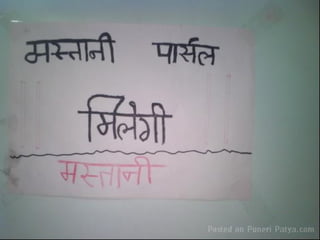 मस्तानी पार्सल
मिलेगी
मस्तानी
Posted on Puneri Patya.com